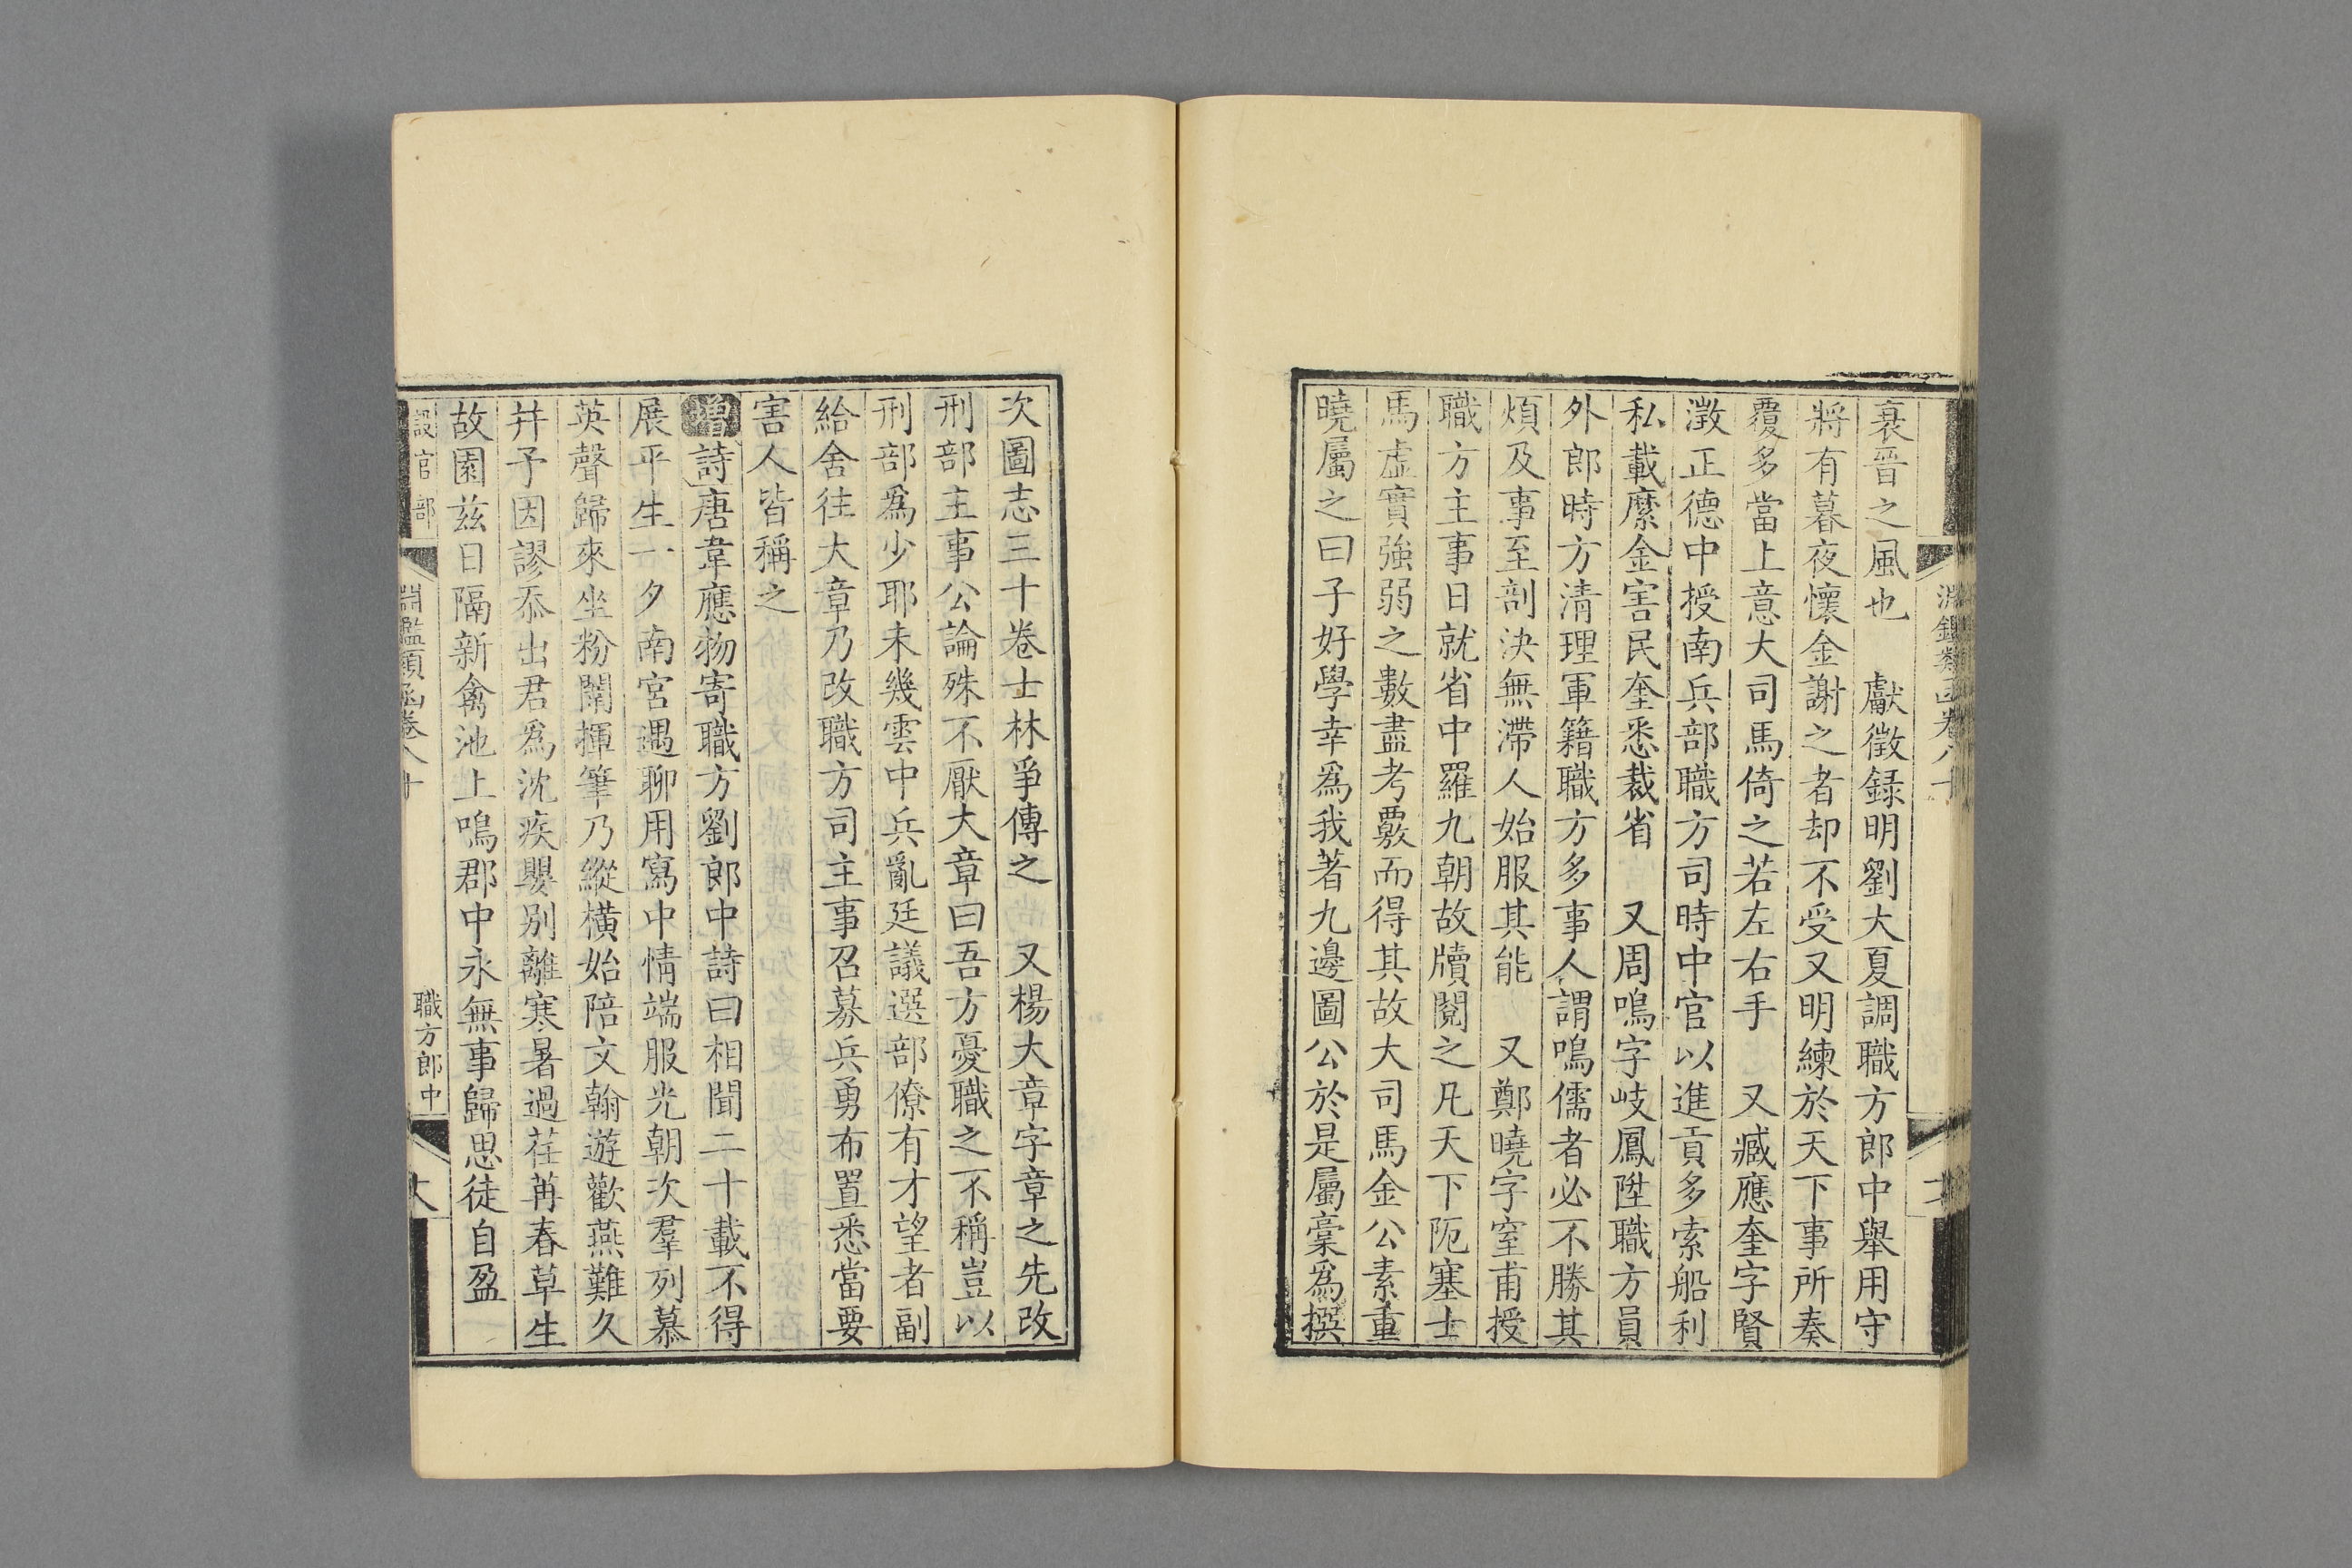 衰晉之風也　獻徵録明劉大夏調職方郎中舉用守
將有暮夜懷金謝之者却不受又明練於天下事所奏
覆多當上意大司馬倚之若左右手　又臧應奎字賢
澂正德中授南兵部職方司時中官以進貢多索船利
私載縻金害民奎悉裁省　又周鳴字岐鳳陞職方員
外郎時方清理軍籍職方多事人謂鳴儒者必不勝其
煩及事至剖決無滯人始服其能　又鄭曉字窒甫授
職方主事日就省中羅九朝故牘閱之凡天下阨塞士
馬虛實強弱之數盡考覈而得其故大司馬金公素重
曉屬之曰子好學幸爲我著九邊圖公於是屬稾爲撰
次圖志三十卷士林爭傳之　又楊大章字章之先改
刑部主事公論殊不厭大章曰吾方憂職之不稱豈以
刑部爲少耶未幾雲中兵亂廷議選部僚有才望者副
給舍往大章乃改職方司主事召募兵勇布置悉當要
害人皆稱之
增詩唐韋應物寄職方劉郎中詩曰相聞二十載不得
展平生一夕南宮遇聊用寫中情端服光朝次羣列慕
英聲歸來坐粉闈揮筆乃縱橫始陪文翰遊歡燕難久
并予因謬忝出君爲沈疾嬰別離寒暑過荏苒春草生
故園茲日隔新禽池上鳴郡中永無事歸思徒自盈
設官部　淵鑑類函卷八十　職方郎中